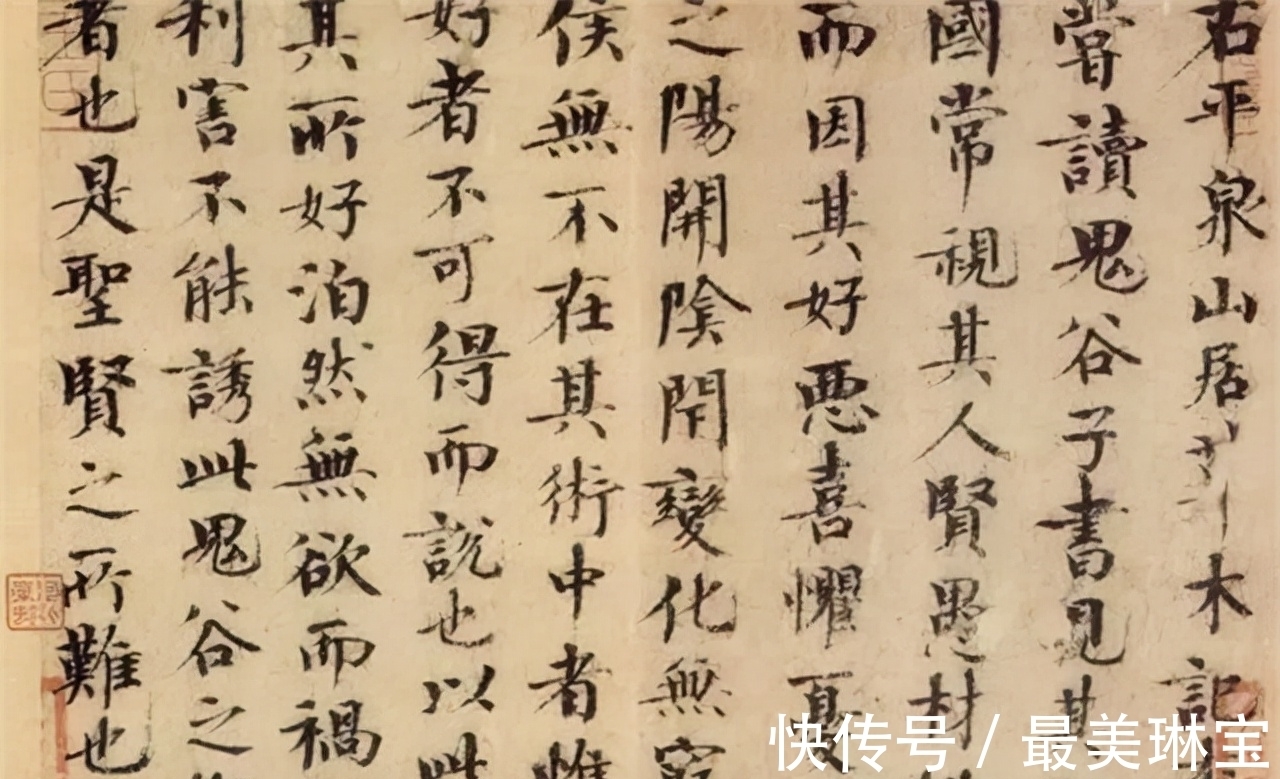 右平泉山居草木記
嘗讀鬼谷子書見其
國常視其人賢愚材
而因其好惡喜懼憂
之陽開陰閉變化無窮
侯無不在其術中者惟
好者不可得而說也以此
其所好泊然無欲而禍
利害不能誘此鬼谷之
者也是聖賢之所難也
快传号 / 最美琳宝